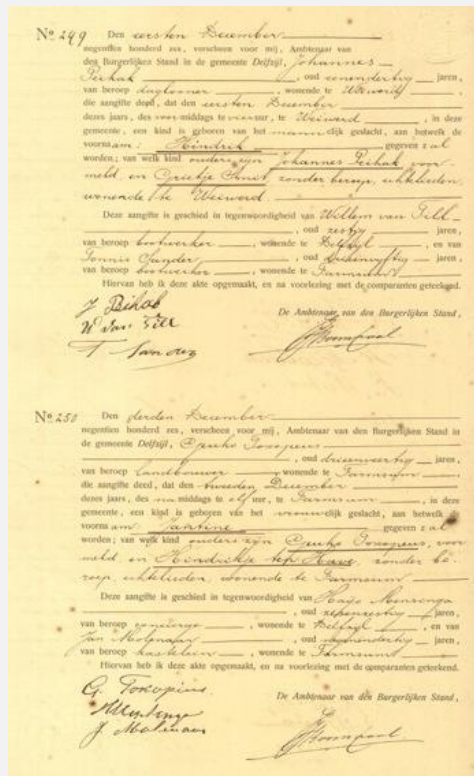 Nº 249 Den eersten December
negentien honderd zes, verscheen voor mij, Ambtenaar van
den Burgerlijken Stand in de gemeente Delfzijl, Johannes
Peihak, oud eenendertig jaren,
van beroep daglooner, wonende te Weiwerd,
die aangifte deed, dat den eersten December
dezes jaars, des voor middags te vier uur, te Weiwerd, in deze
gemeente, een kind is geboren van het mann elijk geslacht, aan hetwelk de
voornaam: Hindrik gegeven zal
worden; van welk kind ouders zijn Johannes Peihak voor-
meld, en Grietje Smit, zonder beroep, echtelieden,
wonende te Weiwerd.
Deze aangifte is geschied in tegenwoordigheid van Willem van Till
, oud zestig jaren,
van beroep bootwerker, wonende te Delfzijl, en van
Tonnis Sander, oud jaren,
van beroep bootwerker, wonende te Farmsum.
Hiervan heb ik deze akte opgemaakt, en na voorlezing met de comparanten geteekend.
De Ambtenaar van den Burgerlijken Stand,
J Peihak
W van Till
T Sander
Nº 250 Den derden December
negentien honderd zes, verscheen voor mij, Ambtenaar van den Burgerlijken Stand in
de gemeente Delfzijl, Geuko Tocopeus
, oud drieenveertig jaren,
van beroep landbouwer, wonende te Farmsum
die aangifte deed, dat den tweeden December
dezes jaars, des na middags te elf uur, te Farmsum, in deze
gemeente, een kind is geboren van het vrouw elijk geslacht, aan hetwelk de
voornaam: Jantine gegeven zal
worden; van welk kind ouders zijn Geuko Tocopeus, voor
meld en Hindrikje ten Have, zonder be-
roep, echtelieden, wonende te Farmsum
Deze aangifte is geschied in tegenwoordigheid van Hajo Mensinga
, oud zevenzestig jaren,
van beroep concierge, wonende te Delfzijl, en van
Jan Molenaar, oud jaren,
van beroep kastelein, wonende te Farmsum
Hiervan heb ik deze akte opgemaakt, en na voorlezing met de comparanten geteekend.
De Ambtenaar van den Burgerlijken Stand,
G. Tocopeus
HMensinga
J. Molenaar